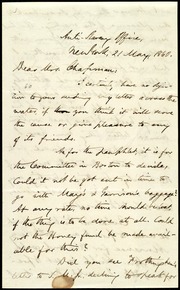 Anti-Slavery Office,
New York, 21 May, 1860.
Dear Mrs. Chapman,
I certainly have no objec-
tion to your sending my letter across the
water, if you think it will serve
the cause or give pleasure to any
of its friends.
As for the pamphlet, it is for
the Committee in Boston to decide.
Could it not be got out in time to
go with May's & Garrison's baggage?
At any rate no time should be lost
if the thing is to be done at all. Could
not the Hovey fund be made avail-
able for this?
Did you see Frothingham's
letter to S. M. Jr. declining to speak for